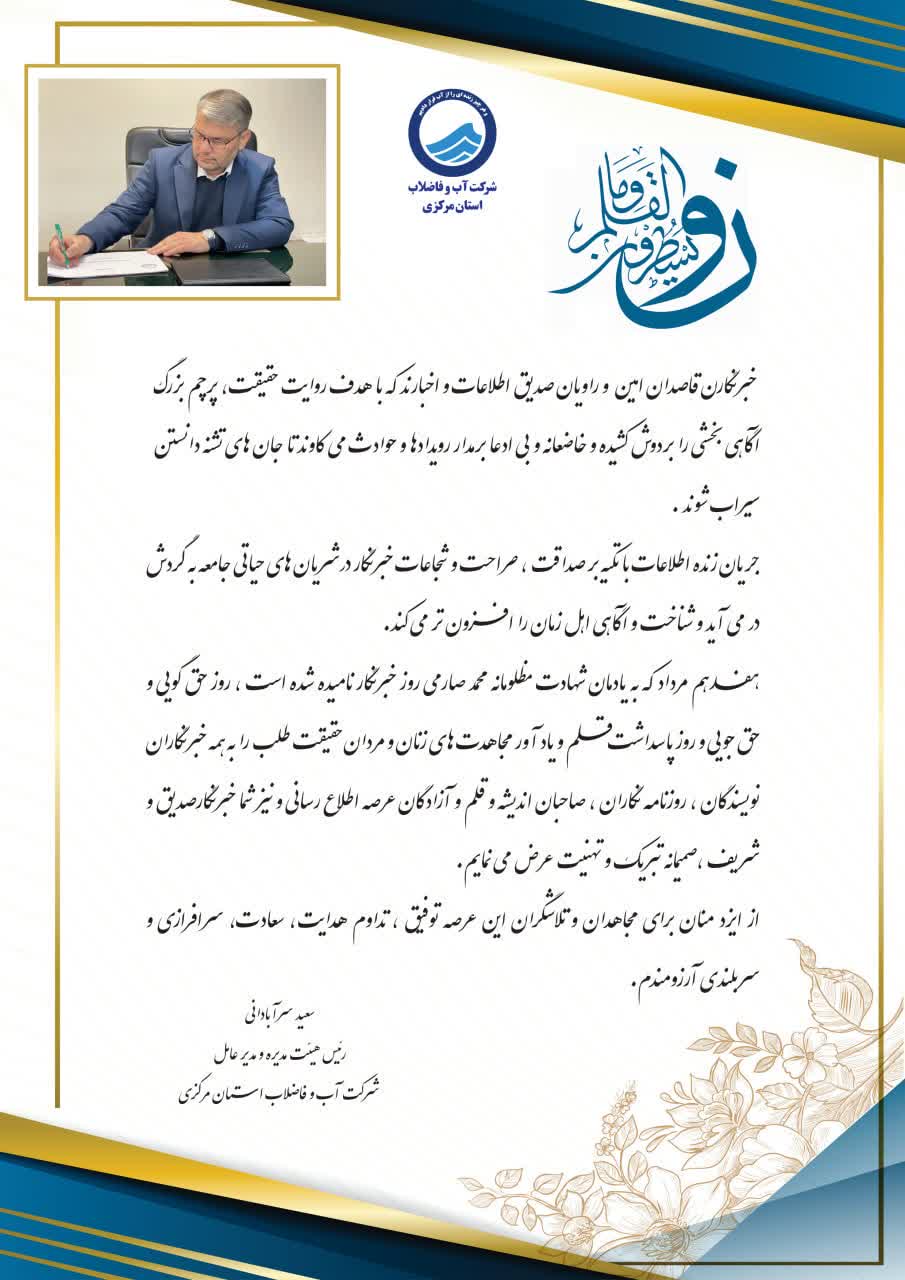 و هر چیز زنده ای را از آب قرار دادیم
شرکت آب و فاضلاب
استان مرکزی
ن والقلم وما یسطرون
خبرنگارن قاصدان امین و راویان صدیق اطلاعات و اخبارند که با هدف روایت حقیقت، پرچم بزرگ
آگاهی بخشی را بر دوش کشیده و خاضعانه و بی ادعا بر مدار رویدادها و حوادث می کاوند تا جان های تشنه دانستن
سیراب شوند .
جریان زنده اطلاعات با تکیه بر صداقت ، صراحت و شجاعات خبرنگار در شریان های حیاتی جامعه به گردش
در می آید و شناخت و آگاهی اهل زمان را افزون تر می کند.
هفدهم مرداد که به یادمان شهادت مظلومانه محمد صارمی روز خبرنگار نامیده شده است ، روز حق گویی و
حق جویی و روز پاسداشت قلم و یاد آور مجاهدت های زنان و مردان حقیقت طلب را به همه خبرنگاران
نویسندگان ، روزنامه نگاران ، صاحبان اندیشه و قلم و آزادگان عرصه اطلاع رسانی و نیز شما خبرنگار صدیق و
شریف ،صمیمانه تبریک و تهنیت عرض می نمایم .
از ایزد منان برای مجاهدان و تلاشگران این عرصه توفیق ، تداوم هدایت، سعادت، سرافرازی و
سربلندی آرزومندم .
سعید سرآبادانی
رئیس هیئت مدیره و مدیر عامل
شرکت آب و فاضلاب استان مرکزی